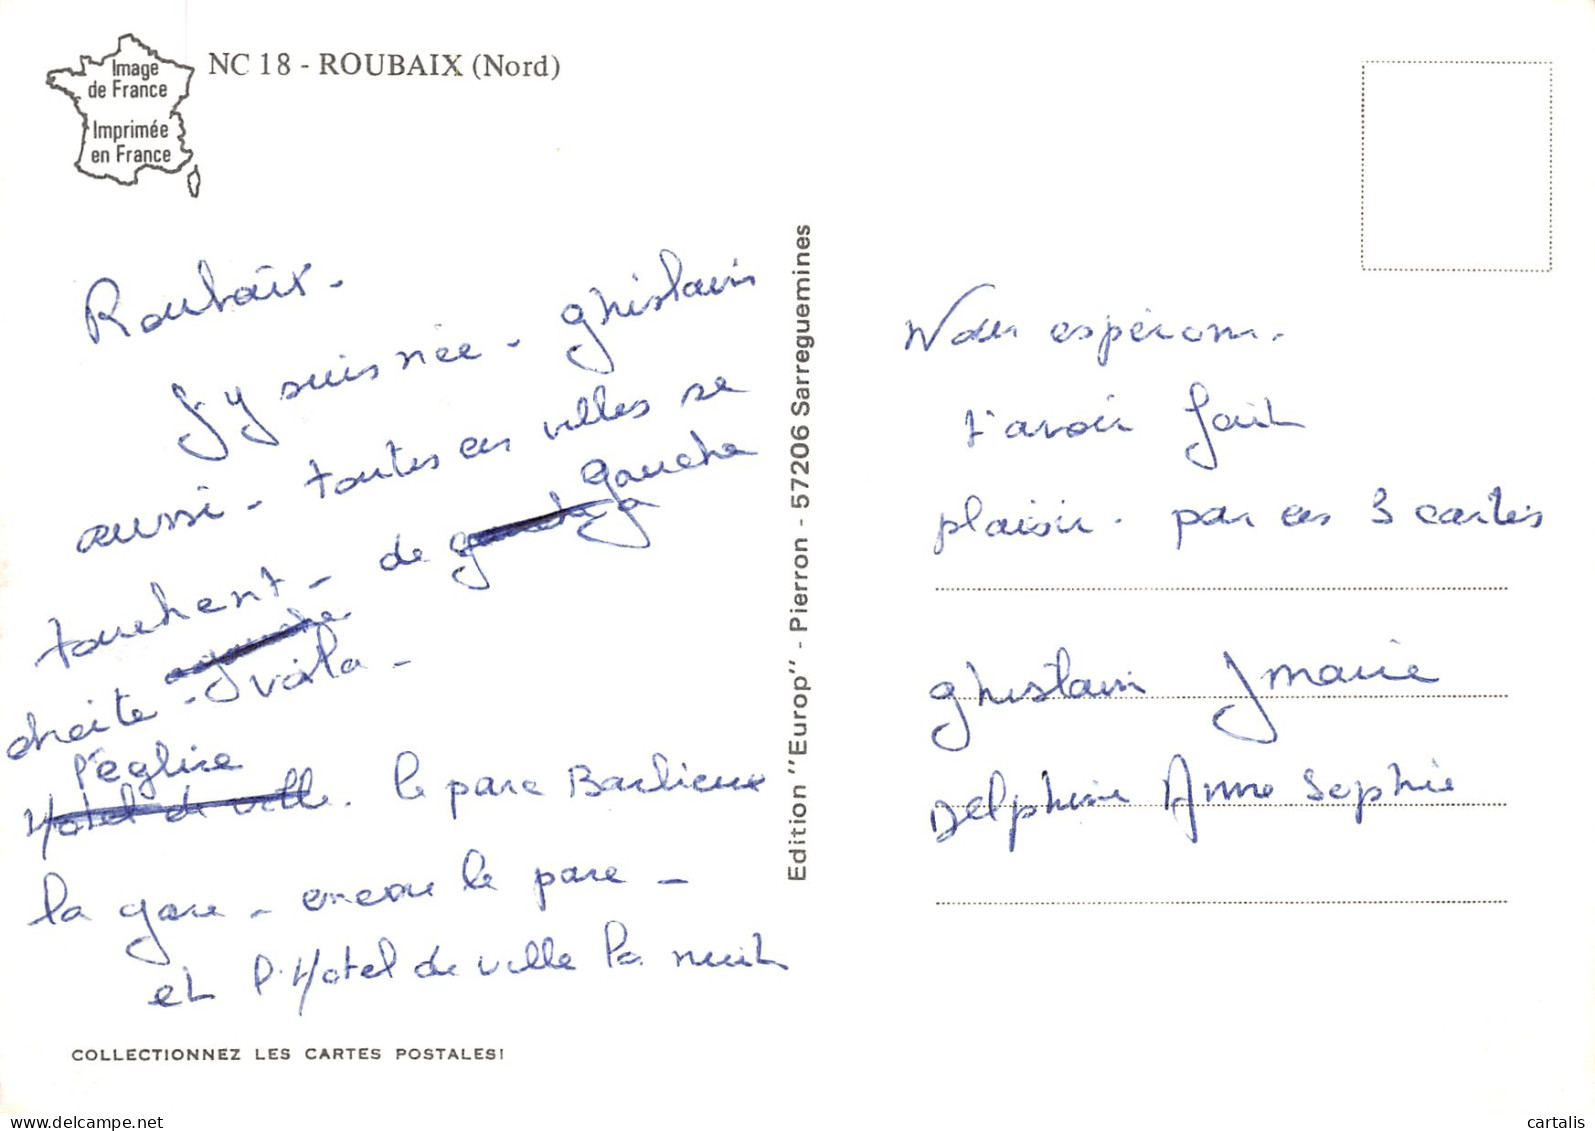 Image
de France
Imprimée
en France
NC 18 - ROUBAIX (Nord)
Roubaix -
J'y suis née - ghislain
aussi - toutes ces villes se
touchent - de gauche
droite - voila -
l'église
Hotel de ville. le parc Barbieux
la gare - encore le parc -
et l'Hotel de ville la nuit
COLLECTIONNEZ LES CARTES POSTALES!
Edition "Europ" - Pierron - 57206 Sarreguemines
Nous espérons -
t'avoir fait
plaisir - par ces 3 cartes
ghislain J marie
Delphine Anne Sophie
cartalis
delcampe.net